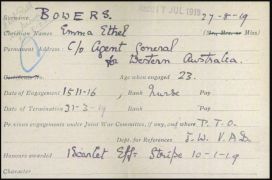 17 JUL 1919
Surname BOWERS. 27-8-19
Christian Names Emma Ethel (Mr., Mrs. or Miss)
Permanent Address c/o Agent General
for Western Australia.
Certificate No. Age when engaged 23.
Date of Engagement 15-11-16 Rank Nurse Pay
Date of Termination 31-3-19 Rank Pay
Previous engagements under Joint War Committee, if any, and where P.T.O.
Dept. for References V.A.D.
Honours awarded Scarlet Eff. Stripe 10-1-19
Character